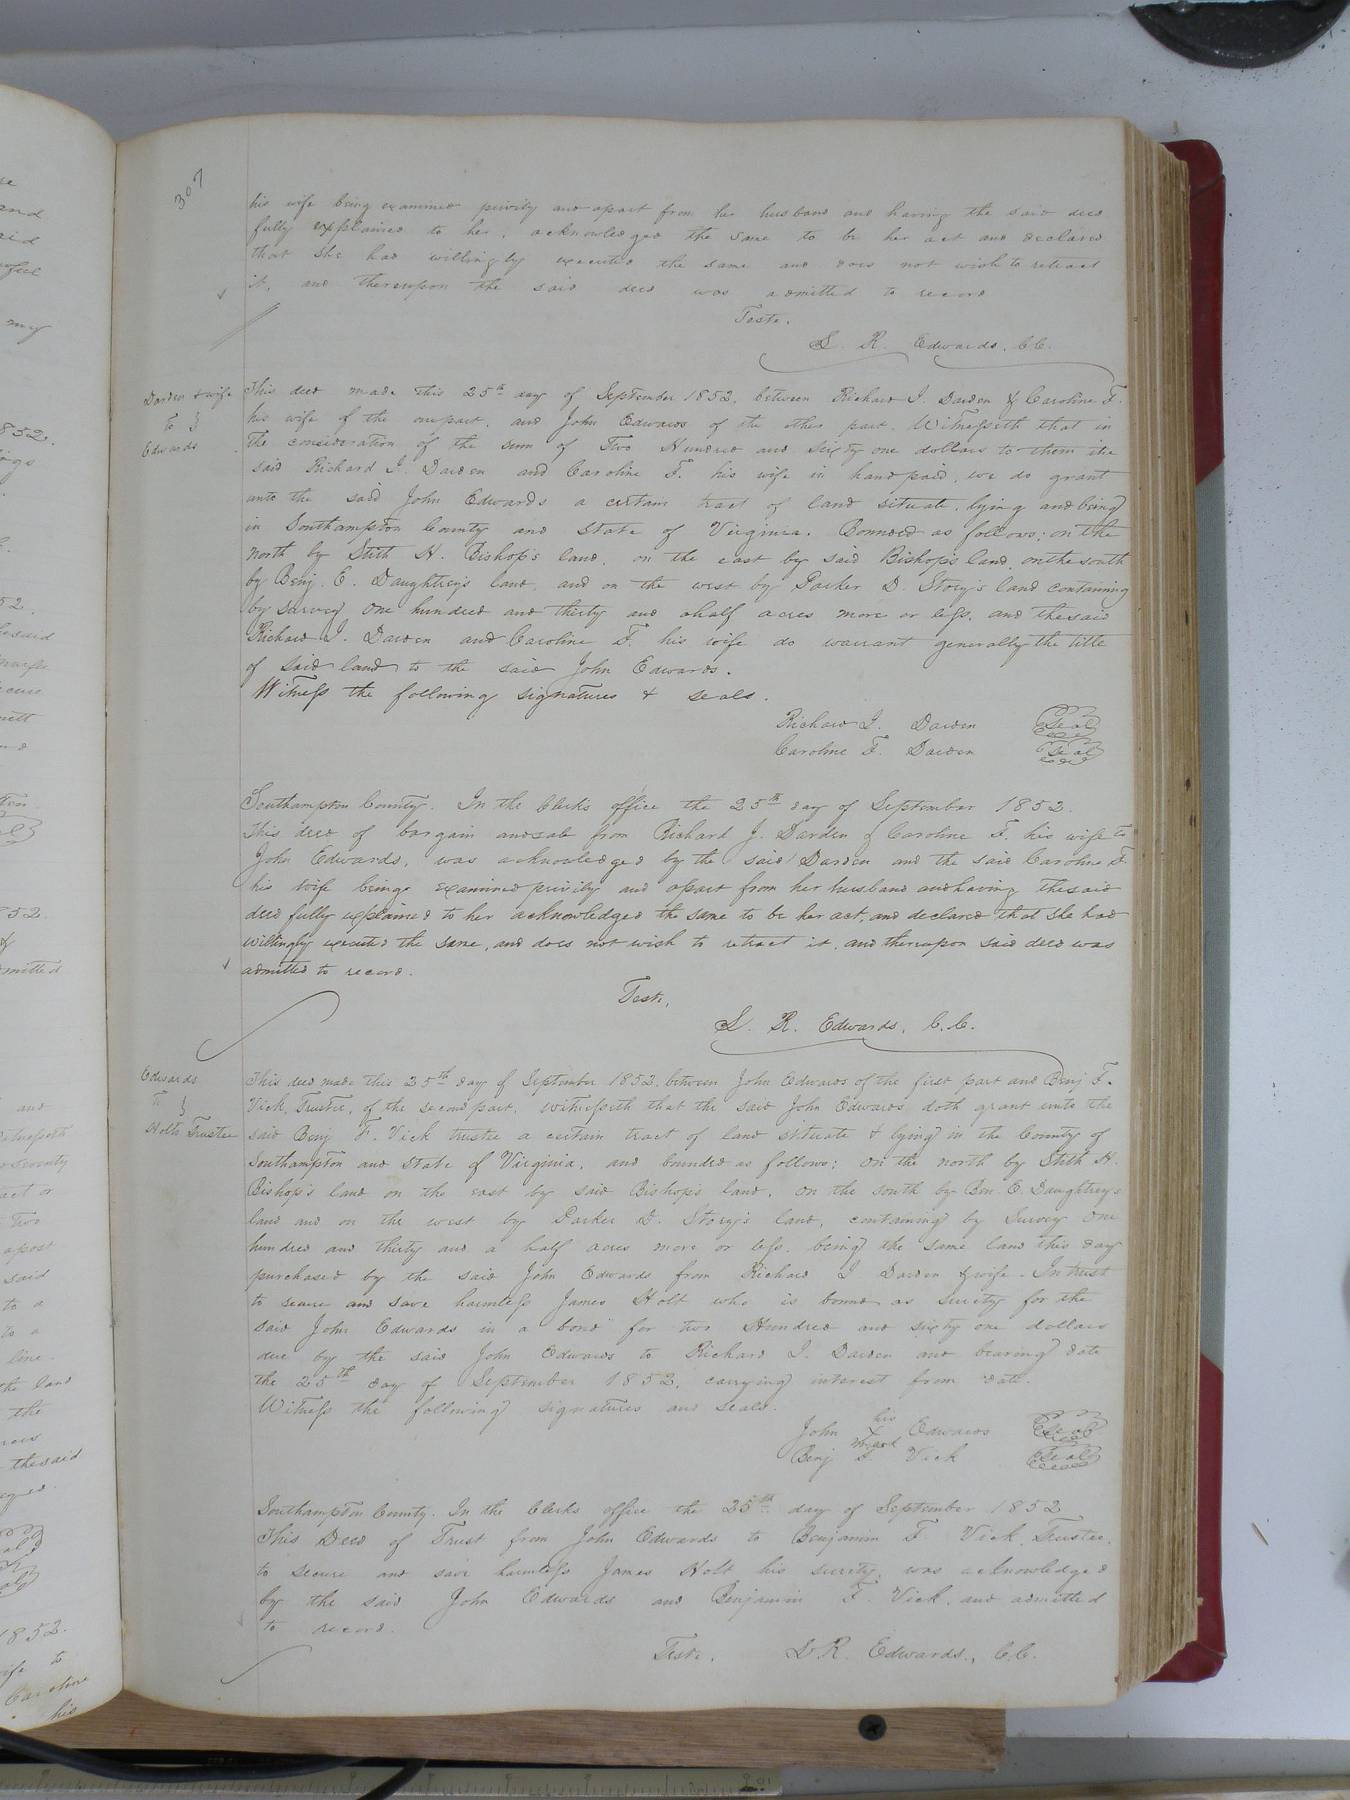 307
his wife being examined privily and apart from her husband and having the said deed
fully explained to her, acknowledged the same to be her act and declared
that She had willingly executed the same and does not wish to retract
it, and thereupon the said deed was admitted to record
Teste.
L. R. Edwards, C.C.
Darden & wife
to }
Edwards
This deed made this 25th day of September 1852, between Richard J. Darden & Caroline F.
his wife of the one part, and John Edwards of the other part. Witnesseth that in
the consideration of the sum of Two Hundred and sixty one dollars to them the
said Richard J. Darden and Caroline F. his wife in hand paid, we do grant
unto the said John Edwards a certain tract of land situate, lying and being
in Southampton County and State of Virginia. Bounded as follows: on the
north by Stith H. Bishop's land, on the east by said Bishop's land, on the south
by Benj. E. Daughtrey's land, and on the west by Parker D. Story's land containing
by survey one hundred and thirty and a half acres more or less, and the said
Richard J. Darden and Caroline F. his wife do warrant generally the title
of said land to the said John Edwards.
Witness the following signatures & seals.
Richard J. Darden Seal
Caroline F. Darden Seal
Southampton County. In the Clerk's office the 25th day of September 1852.
This deed of bargain and sale from Richard J. Darden & Caroline F. his wife to
John Edwards, was acknowledged by the said Darden and the said Caroline F.
his wife being examined privily and apart from her husband and having the said
deed fully explained to her acknowledged the same to be her act, and declared that she had
willingly executed the same, and does not wish to retract it, and thereupon said deed was
admitted to record.
Teste,
L. R. Edwards, C.C.
Edwards
To }
Holts Trustee
This deed made this 25th day of September 1852, between John Edwards of the first part and Benj F.
Vick, Trustee, of the second part, witnesseth that the said John Edwards doth grant unto the
said Benj F. Vick trustee a certain tract of land situate & lying in the County of
Southampton and State of Virginia, and bounded as follows: on the north by Stith H.
Bishop's land on the east by said Bishop's land, on the south by Ben. E. Daughtrey's
land and on the west by Parker D. Story's land, containing by Survey One
hundred and thirty and a half acres more or less, being the same land this day
purchased by the said John Edwards from Richard J. Darden & wife. In trust
to secure and save harmless James Holt who is bound as surity for the
said John Edwards in a bond for two Hundred and sixty one dollars
due by the said John Edwards to Richard J. Darden and bearing date
the 25th day of September 1852, carrying interest from date.
Witness the following signatures and seals.
his
John X Edwards Seal
mark
Benj F. Vick Seal
Southampton County. In the Clerks office the 25th day of September 1852
This Deed of Trust from John Edwards to Benjamin F. Vick, Trustee,
to secure and save harmless James Holt his surity, was acknowledged
by the said John Edwards and Benjamin F. Vick, and admitted
to record.
Teste. L. R. Edwards, C.C.